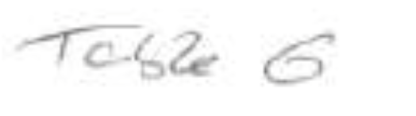 Table 6